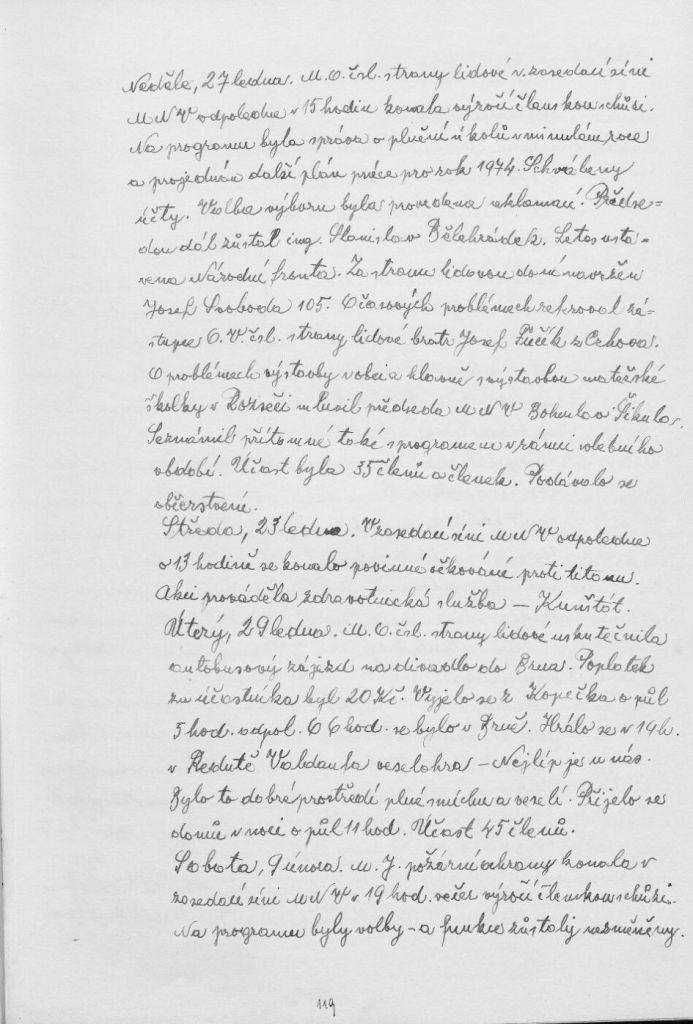 Neděle, 27 ledna. M. O. čsl. strany lidové v zasedací síni
M N V odpoledne v 15 hodin konala výročí členskou schůzi.
Na programu byla správa o plnění úkolů v minulém roce
a projednán další plán práce pro rok 1974. Schváleny
účty. Volba výboru byla provedena aklamací. Předse-
dou dál zůstal ing. Stanislav Bělehrádek. Letos usta-
vena Národní fronta. Za stranu lidovou do ní navržen
Josef Svoboda 105. O časových problémech referoval zá-
stupce O. V. čsl. strany lidové bratr Josef Fučík z Crhova.
O problémech výstavby v obci a hlavně s výstavbou mateřské
školky v Rozseči mluvil předseda M N V Bohuslav Šikula.
Seznámil přítomné také s programem v rámci volebního
období. Účast byla 35 členů a členek. Podávalo se
občerstvení.
Středa, 23 ledna. V zasedací síni M N V odpoledne
o 13 hodině se konalo povinné očkování proti titanu.
Akci prováděla zdravotnická služba – Kunštát.
Úterý, 29 ledna. M. O. čsl. strany lidové uskutečnila
autobusový zájezd na divadlo do Brna. Poplatek
za účastníka byl 20 Kč. Vyjelo se z Kopečka o půl
5 hod. odpol. O 6 hod. se bylo v Brně. Hrálo se v 19 h.
v Redutě Valdaufa veselohra – Nejlíp je u nás.
Bylo to dobré prostředí plné smíchu a veselí. Přijelo se
domů v noci o půl 11 hod. Účast 45 členů.
Sobota, 9 února. M. J. požární ochrany konala v
zasedací síni M N V v 19 hod. večer výročí členskou schůzi.
Na programu byly volby – a funkce zůstaly nezměněny.
119